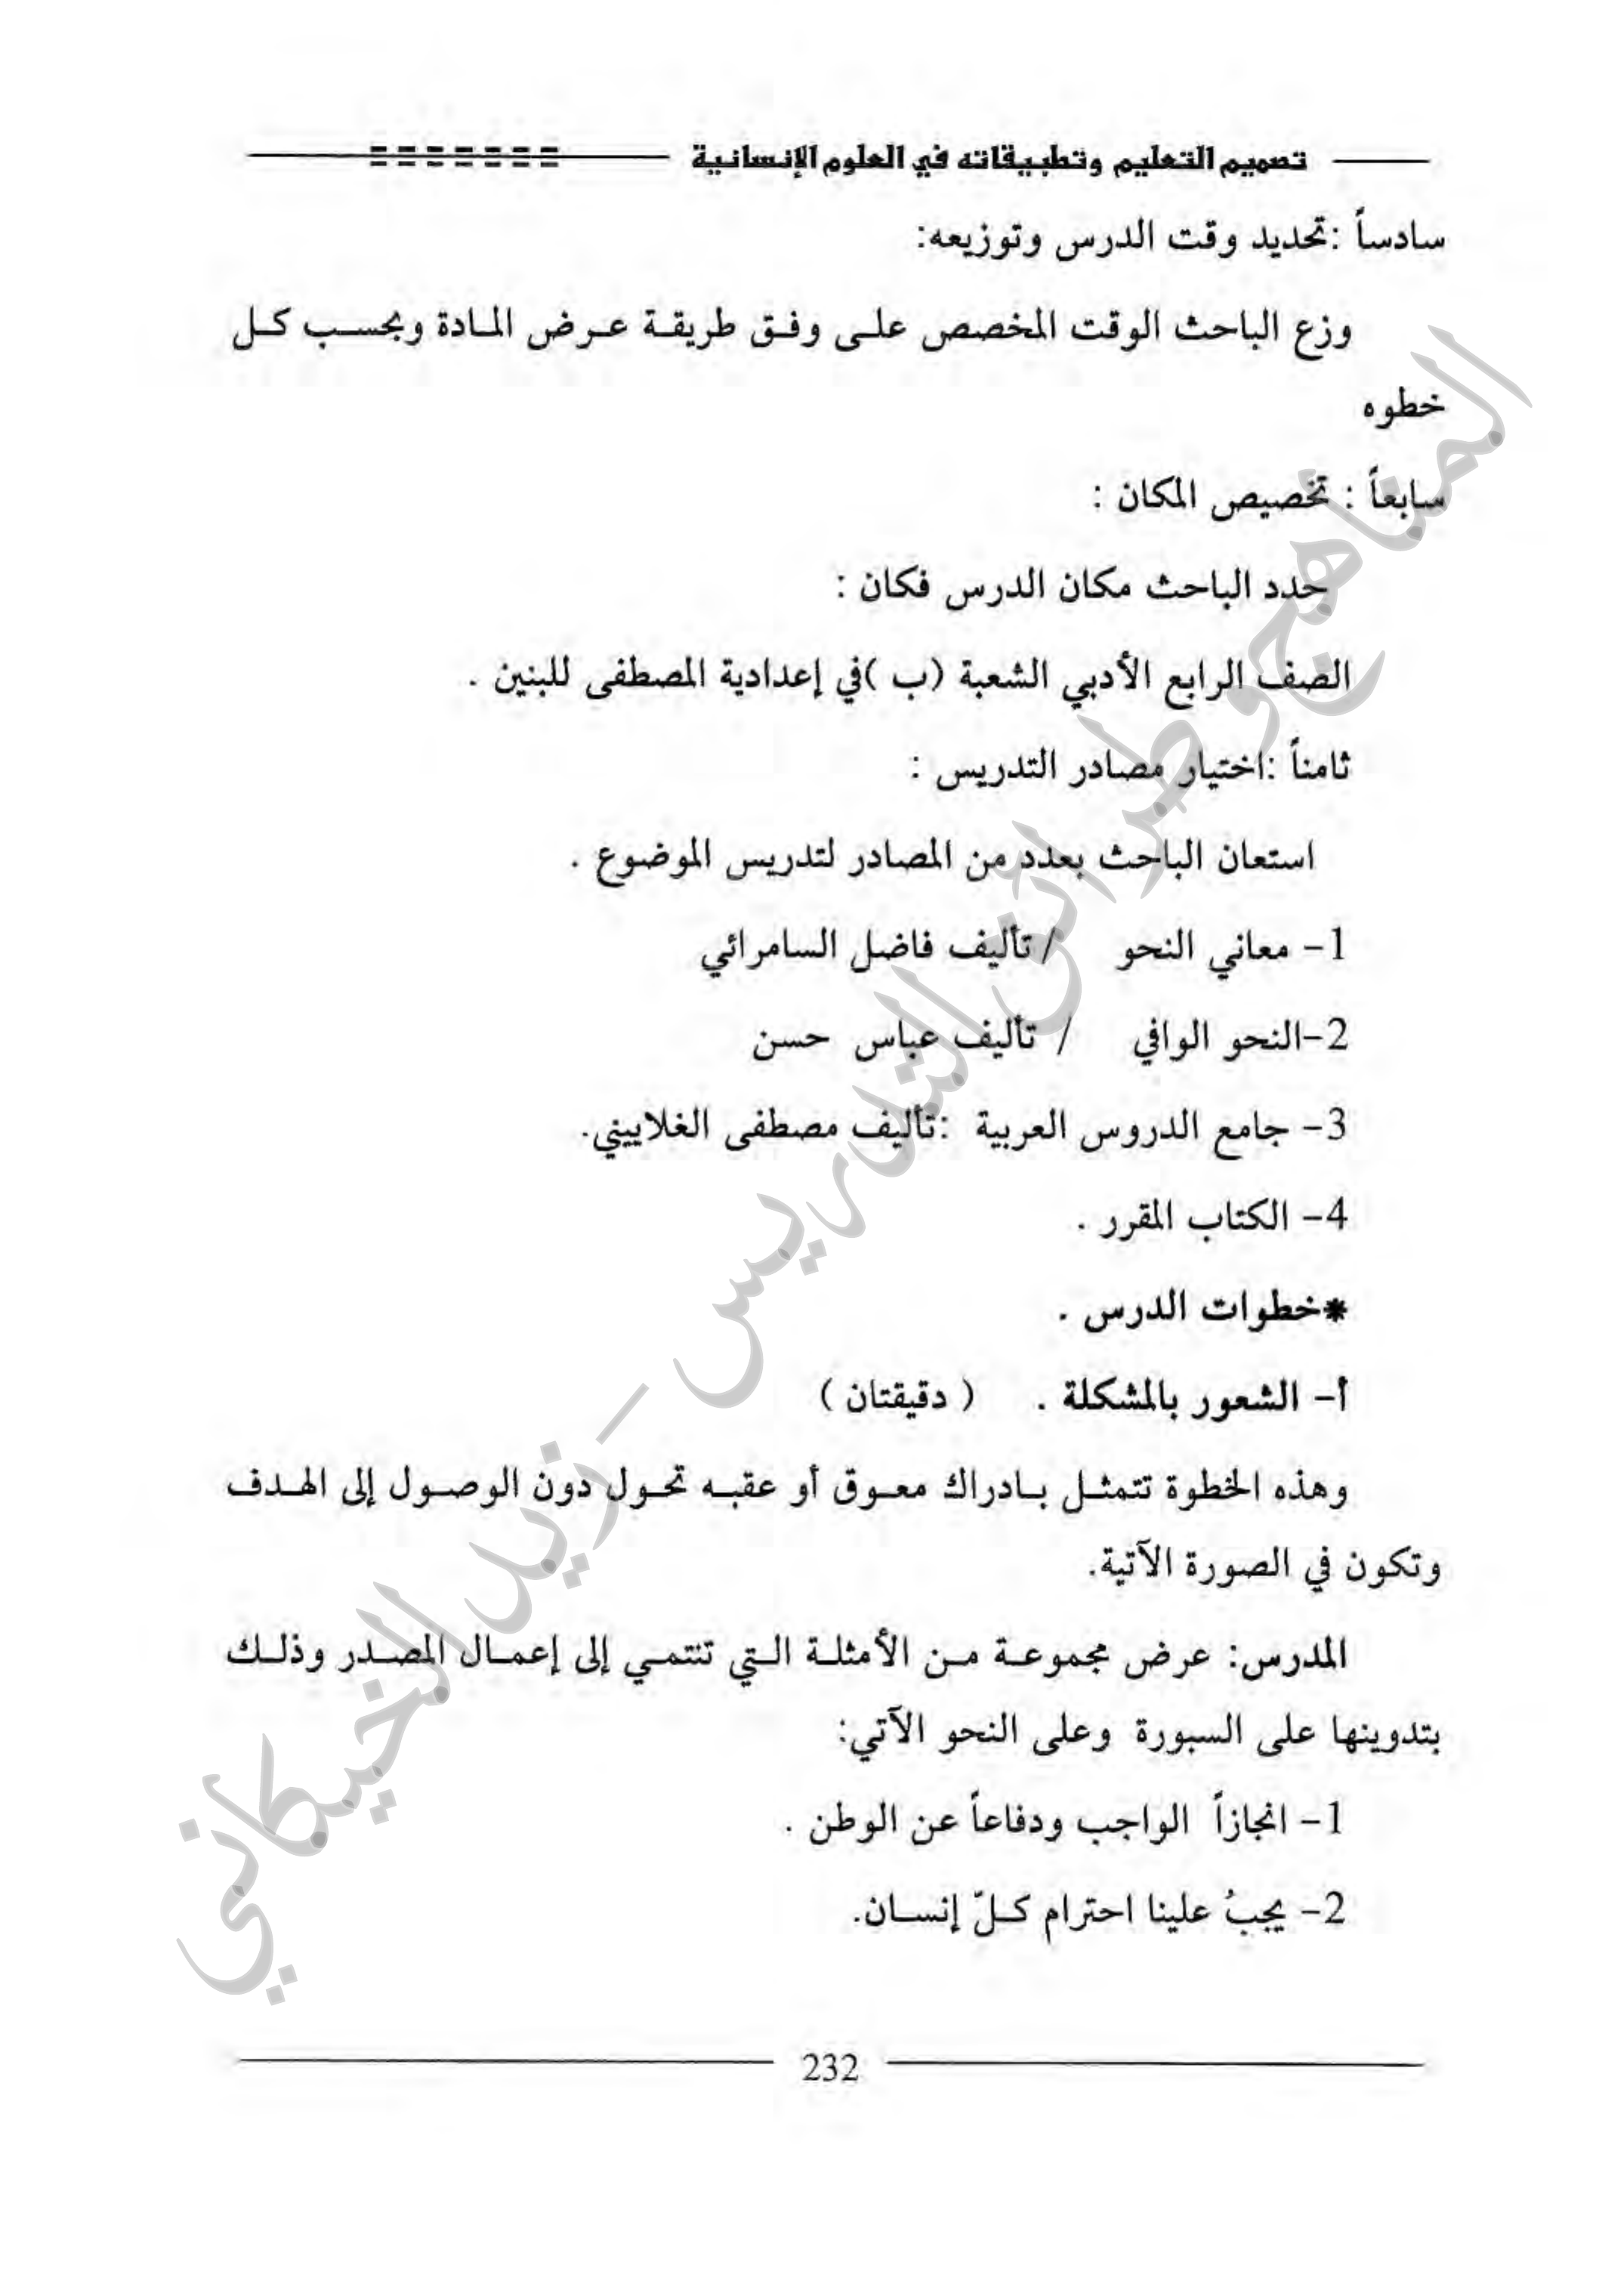 تصميم التعليم وتطبيقاته في العلوم الإنسانية
سادساً :تحديد وقت الدرس وتوزيعه:
وزع الباحث الوقت المخصص على وفق طريقة عرض المادة وبحسب كل
خطوه
سابعاً : تخصيص المكان :
حدد الباحث مكان الدرس فكان :
الصف الرابع الأدبي الشعبة (ب )في إعدادية المصطفى للبنين .
ثامناً :اختيار مصادر التدريس :
استعان الباحث بعدد من المصادر لتدريس الموضوع .
1- معاني النحو / تأليف فاضل السامرائي
2-النحو الوافي / تأليف عباس حسن
3- جامع الدروس العربية :تأليف مصطفى الغلاييني.
4- الكتاب المقرر .
*خطوات الدرس .
أ- الشعور بالمشكلة . ( دقيقتان )
وهذه الخطوة تتمثل بادراك معوق أو عقبه تحول دون الوصول إلى الهدف
وتكون في الصورة الآتية.
المدرس: عرض مجموعة من الأمثلة التي تنتمي إلى إعمال المصدر وذلك
بتدوينها على السبورة وعلى النحو الآتي:
1- انجازاً الواجب ودفاعاً عن الوطن .
2- يجبُ علينا احترام كلّ إنسان.
232
المناهج وطرائق التدريس - زيد الخيكاني